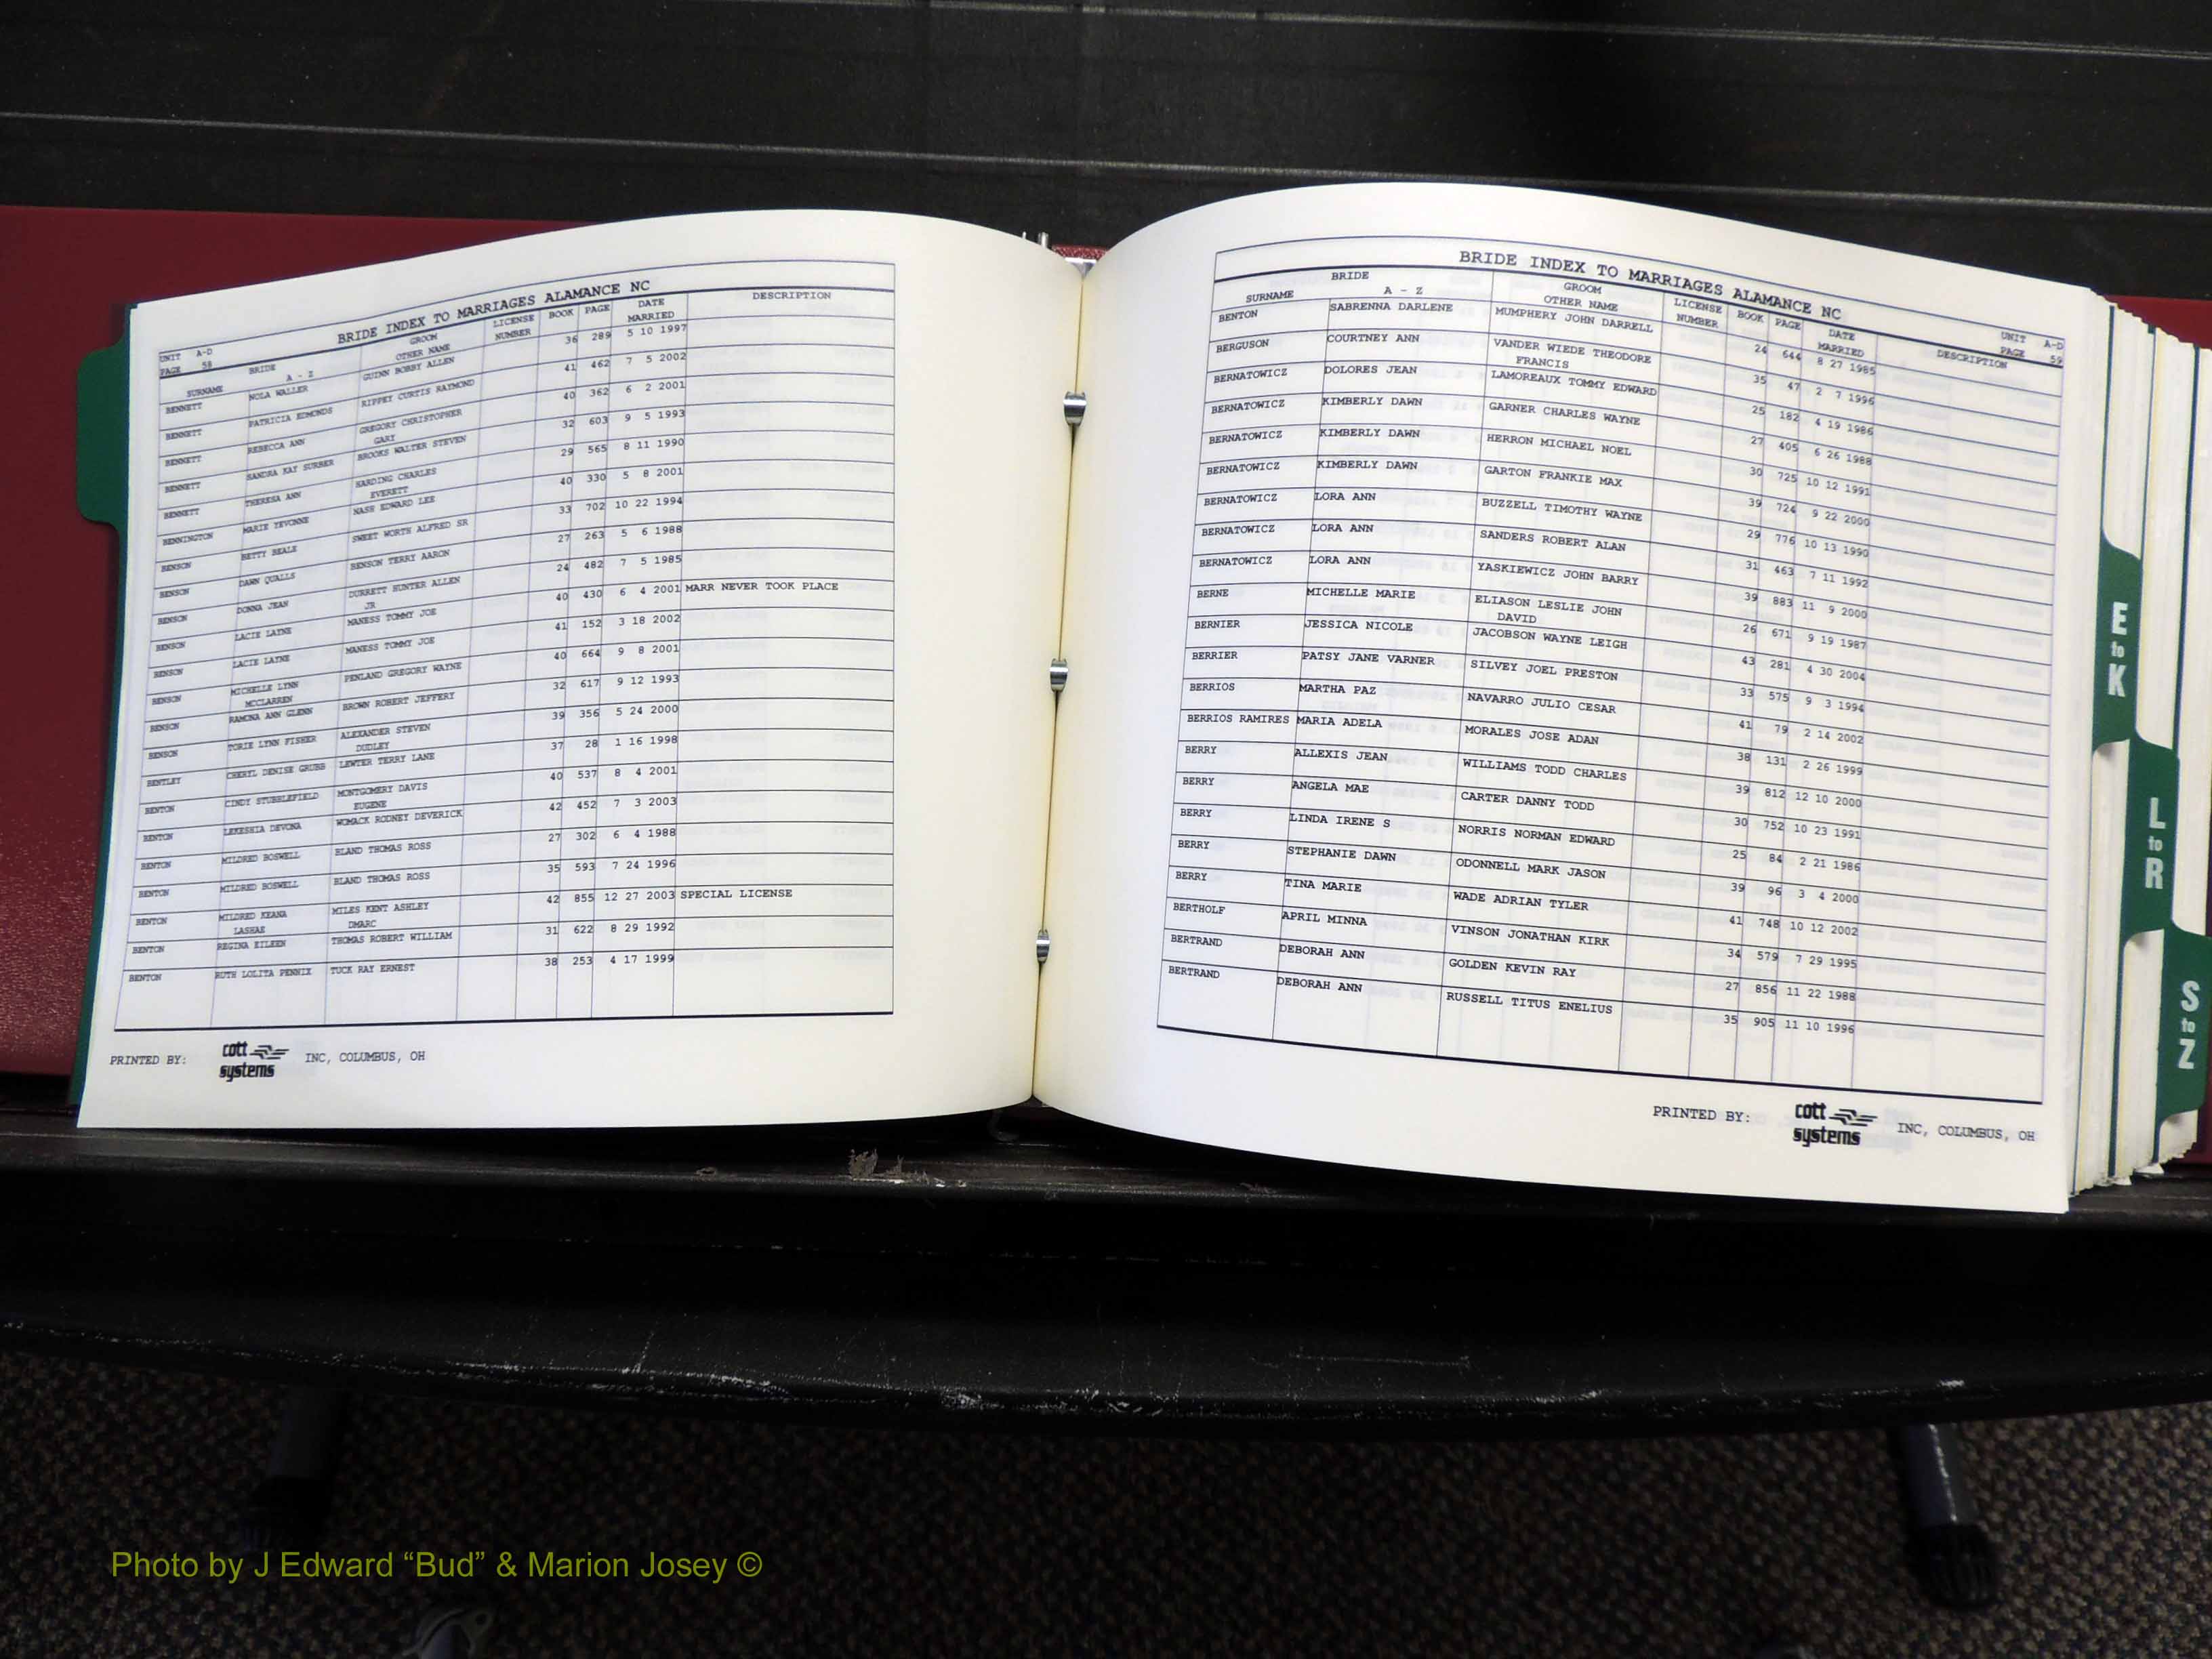 BRIDE INDEX TO MARRIAGES ALAMANCE NC
UNIT A-D
PAGE 58
BRIDE GROOM LICENSE BOOK PAGE DATE DESCRIPTION
SURNAME A - Z OTHER NAME NUMBER MARRIED
BENNETT NOLA WALLER GUINN BOBBY ALLEN 36 289 5 10 1997
BENNETT PATRICIA EDMONDS RIPPEY CURTIS RAYMOND 41 462 7 5 2002
BENNETT REBECCA ANN GREGORY CHRISTOPHER 40 362 6 2 2001
GARY
BENNETT SANDRA KAY SURBER BROOKS WALTER STEVEN 32 603 9 5 1993
BENNETT THERESA ANN HARDING CHARLES 29 565 8 11 1990
EVERETT
BENNINGTON MARIE YEVONNE NASH EDWARD LEE 40 330 5 8 2001
BENSON BETTY BEALE SWEET WORTH ALFRED SR 33 702 10 22 1994
BENSON DAWN QUALLS BENSON TERRY AARON 27 263 5 6 1988
BENSON DONNA JEAN DURRETT HUNTER ALLEN 24 482 7 5 1985
JR
BENSON LACIE LAYNE MANESS TOMMY JOE 40 430 6 4 2001 MARR NEVER TOOK PLACE
BENSON LACIE LAYNE MANESS TOMMY JOE 41 152 3 18 2002
BENSON MICHELLE LYNN PENLAND GREGORY WAYNE 40 664 9 8 2001
MCCLARREN
BENSON RAMONA ANN GLENN BROWN ROBERT JEFFERY 32 617 9 12 1993
BENSON TORIE LYNN FISHER ALEXANDER STEVEN 39 356 5 24 2000
DUDLEY
BENTLEY CHERYL DENISE GRUBB LEWTER TERRY LANE 37 28 1 16 1998
BENTON CINDY STUBBLEFIELD MONTGOMERY DAVIS 40 537 8 4 2001
EUGENE
BENTON LEKESHIA DEVONA WOMACK RODNEY DEVERICK 42 452 7 3 2003
BENTON MILDRED BOSWELL BLAND THOMAS ROSS 27 302 6 4 1988
BENTON MILDRED BOSWELL BLAND THOMAS ROSS 35 593 7 24 1996
BENTON MILDRED KEANA MILES KENT ASHLEY 42 855 12 27 2003 SPECIAL LICENSE
LASHAE DMARC
BENTON REGINA EILEEN THOMAS ROBERT WILLIAM 31 622 8 29 1992
BENTON RUTH LOLITA PENNIX TUCK RAY ERNEST 38 253 4 17 1999
PRINTED BY: cott systems INC, COLUMBUS, OH
BRIDE INDEX TO MARRIAGES ALAMANCE NC
UNIT A-D
PAGE 59
BRIDE GROOM LICENSE BOOK PAGE DATE DESCRIPTION
SURNAME A - Z OTHER NAME NUMBER MARRIED
BENTON SABRENNA DARLENE MUMPHERY JOHN DARRELL 24 644 8 27 1985
BERGUSON COURTNEY ANN VANDER WIEDE THEODORE 35 47 2 7 1996
FRANCIS
BERNATOWICZ DOLORES JEAN LAMOREAUX TOMMY EDWARD 25 182 4 19 1986
BERNATOWICZ KIMBERLY DAWN GARNER CHARLES WAYNE 27 405 6 26 1988
BERNATOWICZ KIMBERLY DAWN HERRON MICHAEL NOEL 30 725 10 12 1991
BERNATOWICZ KIMBERLY DAWN GARTON FRANKIE MAX 39 724 9 22 2000
BERNATOWICZ LORA ANN BUZZELL TIMOTHY WAYNE 29 776 10 13 1990
BERNATOWICZ LORA ANN SANDERS ROBERT ALAN 31 463 7 11 1992
BERNATOWICZ LORA ANN YASKIEWICZ JOHN BARRY 39 883 11 9 2000
BERNE MICHELLE MARIE ELIASON LESLIE JOHN 26 671 9 19 1987
DAVID
BERNIER JESSICA NICOLE JACOBSON WAYNE LEIGH 43 281 4 30 2004
BERRIER PATSY JANE VARNER SILVEY JOEL PRESTON 33 575 9 3 1994
BERRIOS MARTHA PAZ NAVARRO JULIO CESAR 41 79 2 14 2002
BERRIOS RAMIRES MARIA ADELA MORALES JOSE ADAN 38 131 2 26 1999
BERRY ALLEXIS JEAN WILLIAMS TODD CHARLES 39 812 12 10 2000
BERRY ANGELA MAE CARTER DANNY TODD 30 752 10 23 1991
BERRY LINDA IRENE S NORRIS NORMAN EDWARD 25 84 2 21 1986
BERRY STEPHANIE DAWN ODONNELL MARK JASON 39 96 3 4 2000
BERRY TINA MARIE WADE ADRIAN TYLER 41 748 10 12 2002
BERTHOLF APRIL MINNA VINSON JONATHAN KIRK 34 579 7 29 1995
BERTRAND DEBORAH ANN GOLDEN KEVIN RAY 27 856 11 22 1988
BERTRAND DEBORAH ANN RUSSELL TITUS ENELIUS 35 905 11 10 1996
PRINTED BY: cott systems INC, COLUMBUS, OH
E to K
L to R
S to Z
Photo by J Edward “Bud” & Marion Josey ©